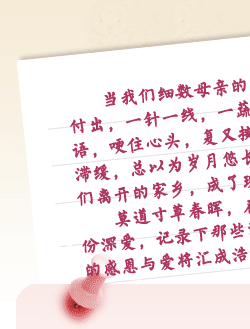 当我们细数母亲的
付出，一针一线，一蔬
语，哽住心头，复又
滞缓，总以为岁月悠
们离开的家乡，成了
莫道寸草春晖，
份深爱，记录下那些
的感恩与爱将汇成浩